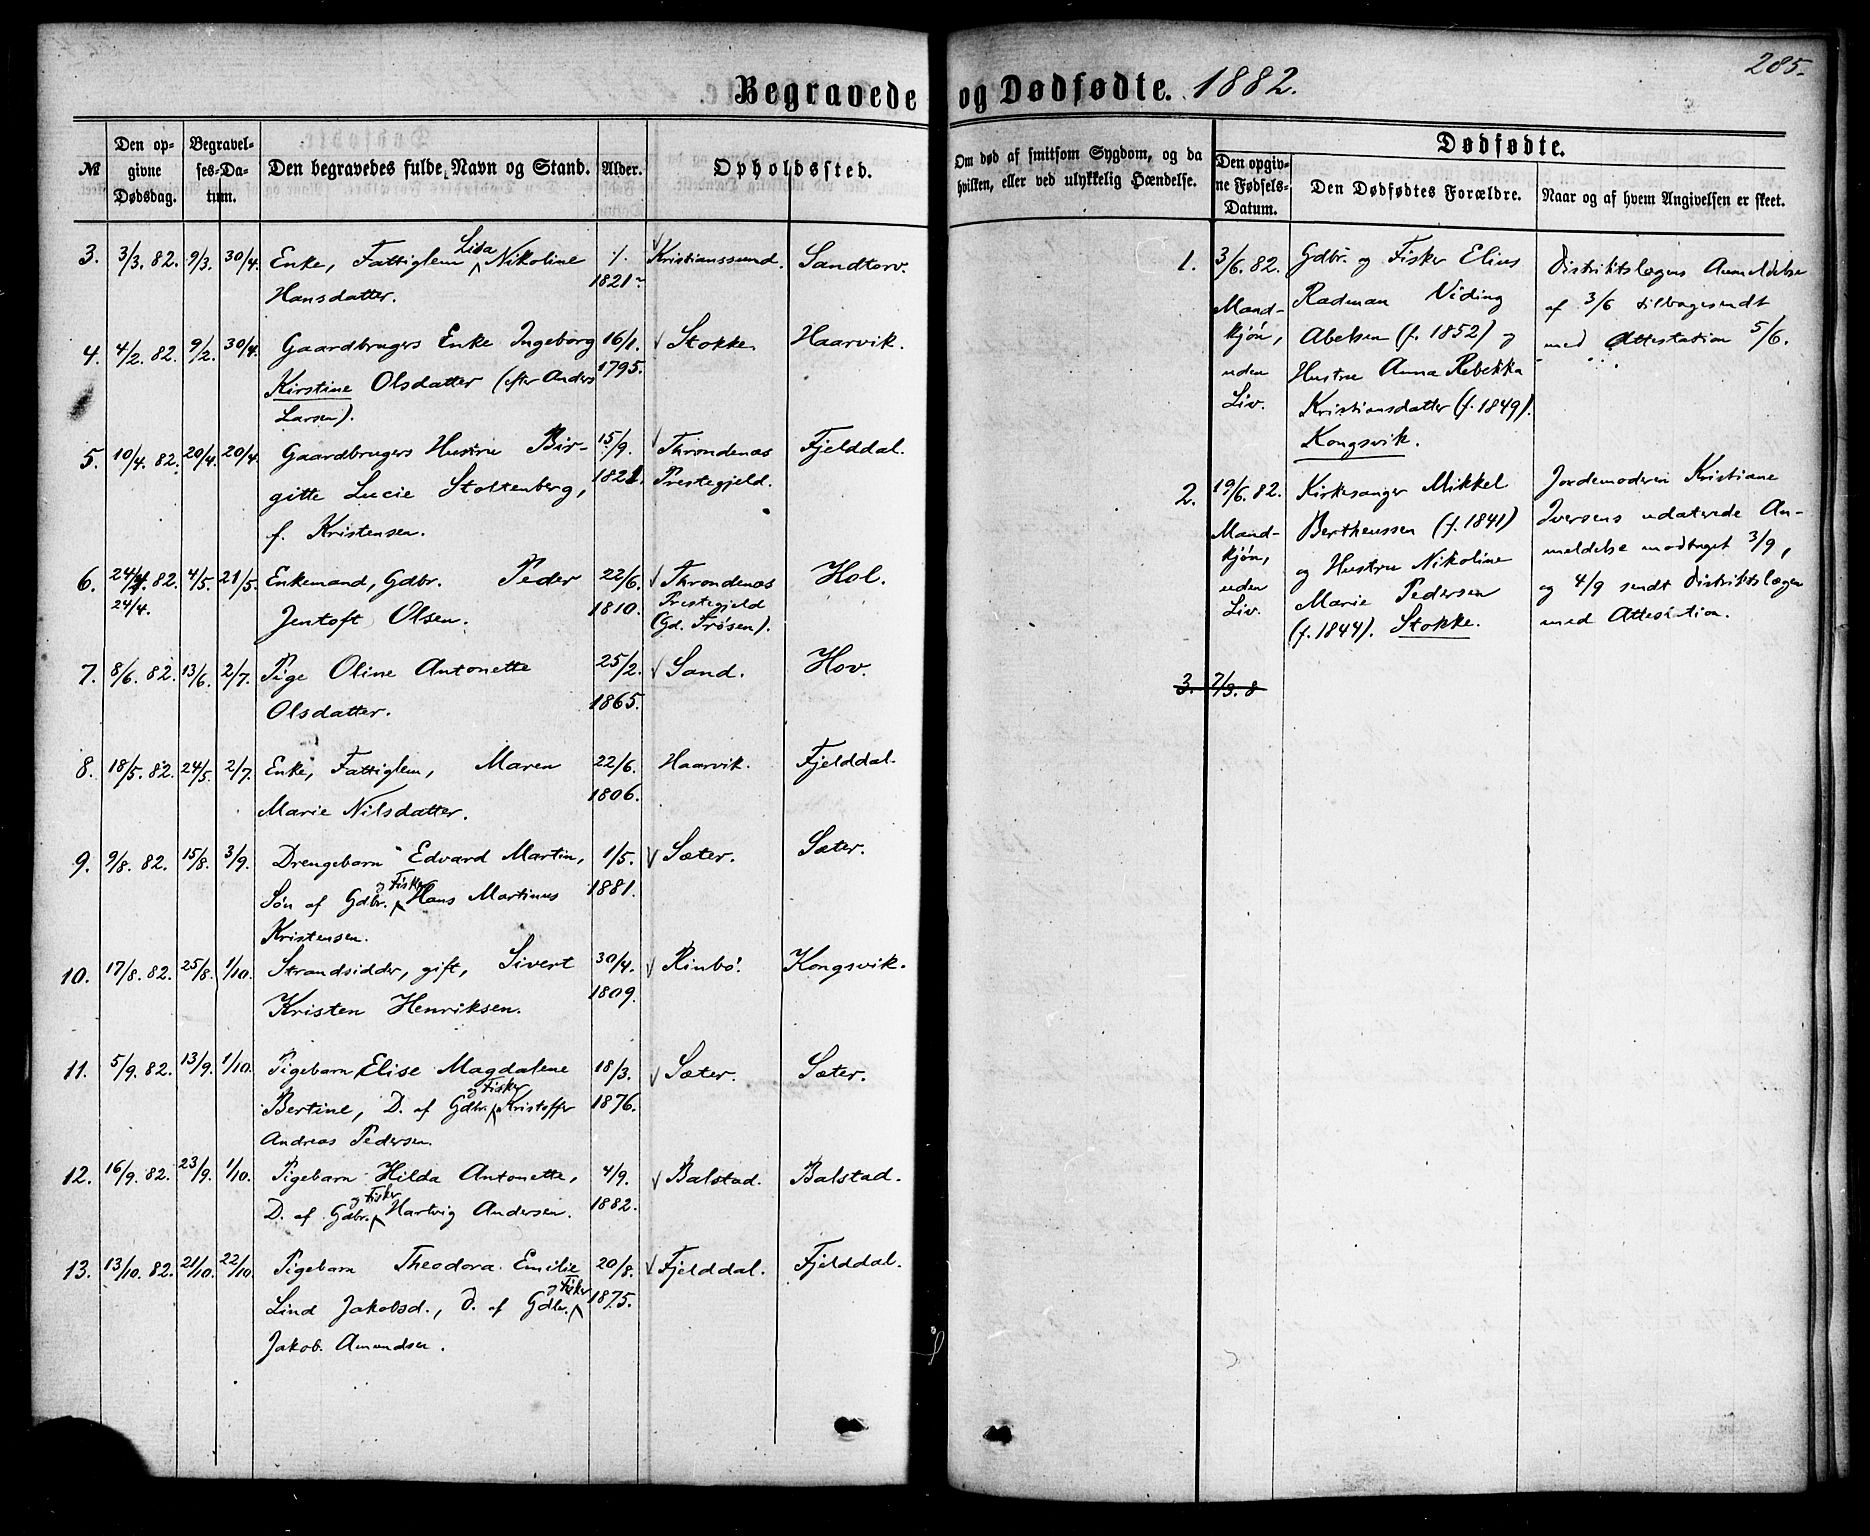 Begravede og Dødfødte. 1882.
285.
№
Den op-
givne
Dødsdag.
Begravel-
ses-Da-
tum.
Den begravedes fulde Navn og Stand.
Alder.
Opholdssted.
Om død af smitsom Sygdom, og da
hvilken, eller ved ulykkelig Hændelse.
Dødfødte.
Den opgiv-
ne Fødsels-
Datum.
Den Dødfødtes Forældre.
Naar og af hvem Angivelsen er skeet.
3. 3/3. 82. 9/3. 30/4. Enke, Fattiglem Lisa Nikoline 1821 Kristianssund. Sandtorv.
Hansdatter.
4. 4/2. 82. 9/2. 30/4. Gaardbrugers Enke Ingeborg 16/1. 1795. Stokke. Haarvik.
Kirstine Olsdatter (efter Anders
Larsen).
5. 10/4. 82. 20/4. 20/4. Gaardbrugers Hustru Bir- 15/9. 1821. Throndenæs Fjelddal.
gitte Lucie Stoltenberg, Prestegjeld.
f. Kristensen.
6. 24/4. 82. 4/5. 21/5. Enkemand, Gdbr. Peder 22/6. Throndenæs Hol.
24/4. Jentoft Olsen. 1810. Prestegjeld
(Gd. Trøsen).
7. 8/6. 82. 13/6. 2/7. Pige Oline Antonette 25/2. Sand. Hov.
Olsdatter. 1865.
8. 18/5. 82. 24/5. 2/7. Enke, Fattiglem, Maren 22/6. Haarvik. Fjelddal.
Marie Nilsdatter. 1806.
9. 9/8. 82. 15/8. 3/9. Drengebarn Edvard Martin, 1/5. Sæter. Sæter.
Søn af Gdbr. og Fisker Hans Martinus 1881.
Kristensen.
10. 17/8. 82. 25/8. 1/10. Strandsidder, gift, Sivert 30/4. Rinbø. Kongsvik.
Kristen Henriksen. 1809.
11. 5/9. 82. 13/9. 1/10. Pigebarn Elise Magdalene 18/3. Sæter. Sæter.
Bertine, D. af Gdbr. og Fisker Kristoffer 1876.
Andreas Pedersen.
12. 16/9. 82. 23/9. 1/10. Pigebarn Hilda Antonette, 4/9. Balstad. Balstad.
D. af Gdbr. og Fisker Hartvig Andersen. 1882.
13. 13/10. 82. 21/10. 22/10. Pigebarn Theodora Emilie 20/8. Fjelddal. Fjelddal.
Lind Jakobsd., D. af Gdbr. og Fisker 1875.
Jakob Amundsen.
1. 3/6. 82. Gdbr. og Fisker Elius Distriktslægens Anmeldelse
Mand- Radman Viding af 3/6 tilbagesendt
kjøn, Abelsen (f. 1852) og med Attestation 5/6.
uden Hustru Anna Rebekka
Liv. Kristiansdatter (f. 1849).
Kongsvik.
2. 19/6. 82. Kirkesanger Mikkel Jordemoderen Kristiane
Mand- Bertheussen (f. 1841) Iversens udaterede An-
kjøn, og Hustru Nikoline meldelse modtaget 3/9,
uden Marie Pedersen og 4/9 sendt Distriktslægen
Liv. (f. 1844). Stokke. med Attestation.
3. 7/3. 8